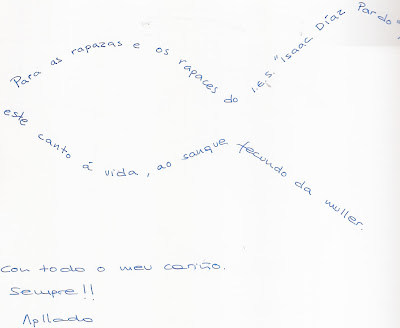 Para as rapazas e os rapaces do I.E.S. "Isaac Díaz Pardo"
este canto á vida, ao sangue fecundo da muller.
Con todo o meu cariño.
Sempre!!